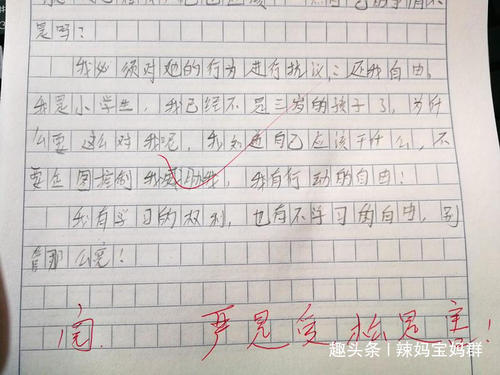 是吗?
我必须对她的行为进行抗议:还我自由。
我是小学生,我已经不是三岁的孩子了,为什
么要这么对我呢,我知道自己应该干什么,不
要企图控制我威胁我,我有行动的自由!
我有学习的权利,也有不学习的自由,别
管那么宽!
阅. 严是爱 松是害!
趣头条 | 辣妈宝妈群